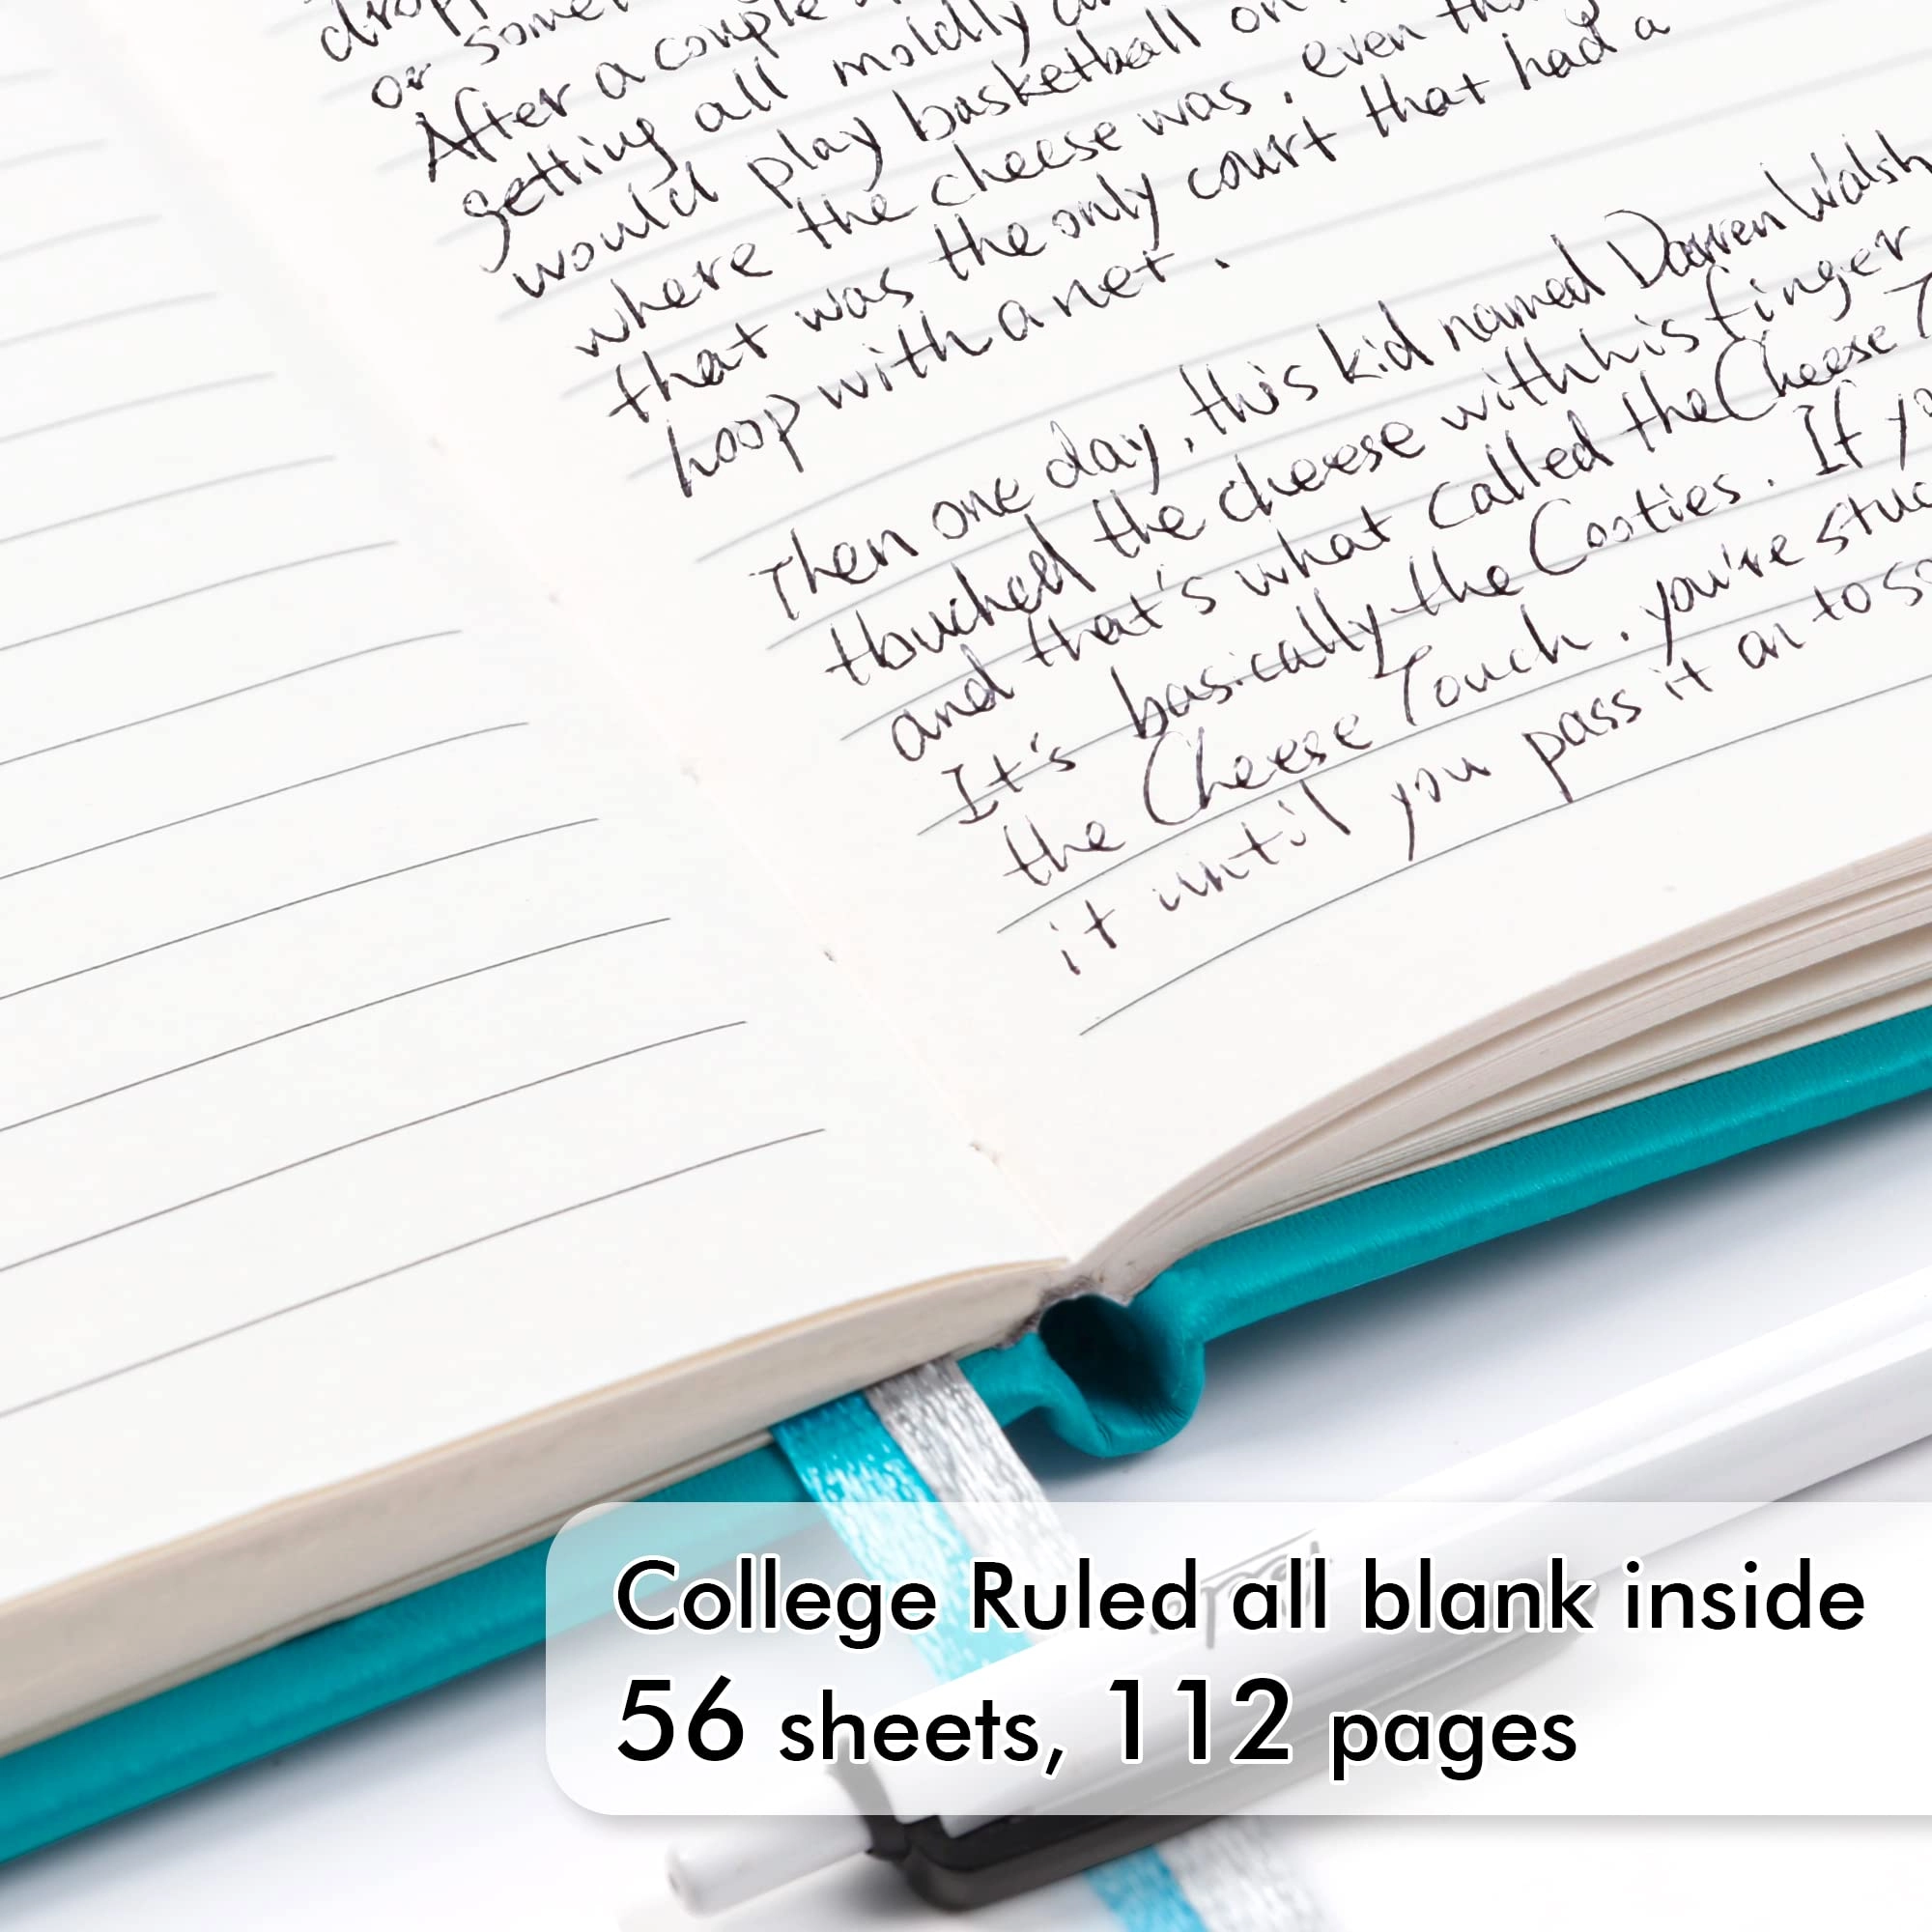 or
After a couple
getting all moldly
would play basketball on
where the cheese was, even
that was the only court that had a
hoop with a net.
Then one day, this kid named Darren Walsh
touched the cheese with his finger
and that's what called the Cheese
It's basically the Cooties. If
the Cheese Touch, you're
it until you pass it on to
College Ruled all blank inside
56 sheets, 112 pages